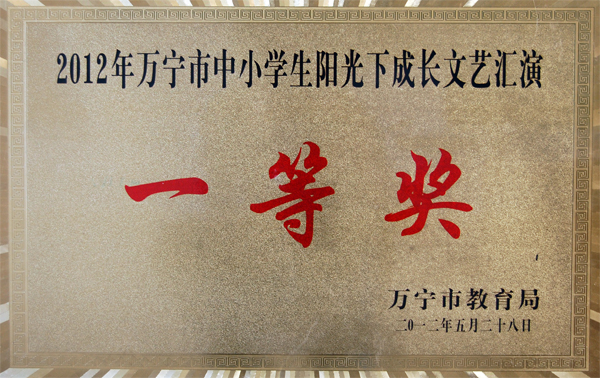 2012年万宁市中小学生阳光下成长文艺汇演
一等奖
万宁市教育局
二〇一二年五月二十八日